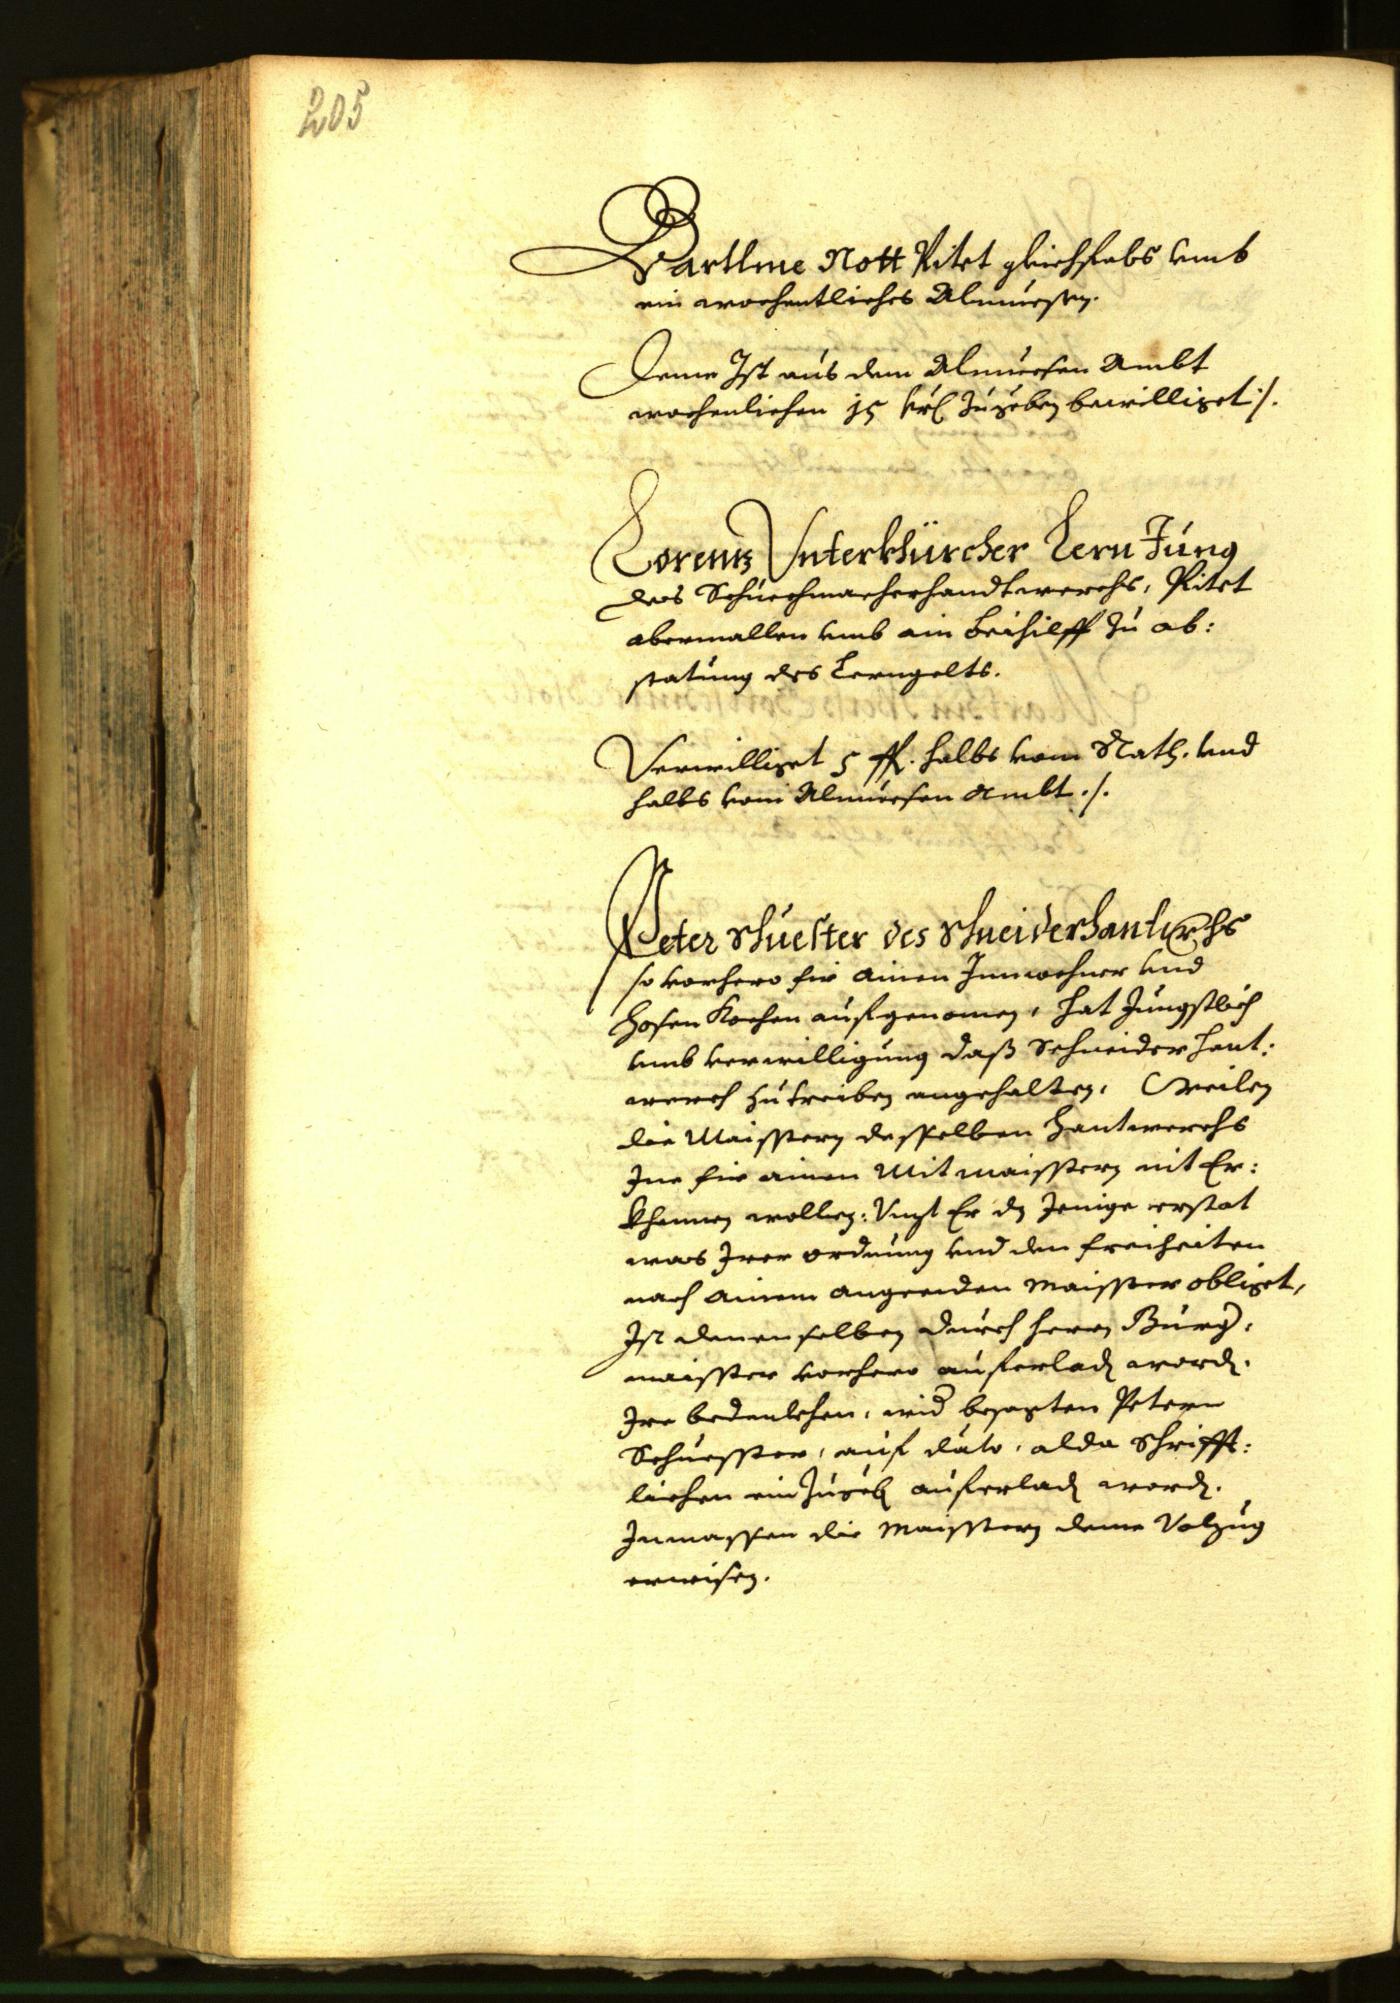 205
Bartlme Nott Pitet gleichfals umb
ein wochentliches Almuesen.
Deme Ist aus dem Almuesen Ambt
wochenlichen 15 kr zugeben bewilliget ./.
Lorentz Unterkhürcher Lern Jung
des Schuechmacherhandtwerchs, Pitet
abermallen umb ain Beihilff zu ab:
statung des Lerngelts.
Verwilliget 5 fl. halbs vom Rath. und
halbs vom Almuesen Ambt ./.
Peter Schuester des Schneiderhantwerchs
so vorhero für ainen Innwohner und
Hosen Kochen aufgenomen, hat Jungstlich
umb verwilligung daß Schneider hant:
werch zu treiben angehalten, Weilen
die Maistern desselben Hantwerchs
Ine für ainen Mitmaistern nit Er:
khennen wollen: Unzt Er dz Jenige erstat
was Irer ordnung und den freiheiten
nach ainem angeenden Maister obliget,
Ist denenselben durch herrn Burg:
maister vorhero auferladen worden.
Ire bedenkhen, wid besagten Petern
Schuester, auf dato, alda schrifft:
lichen einzugeben auferladen worden.
Inmassen die Maistern deme Volzug
erwisen.